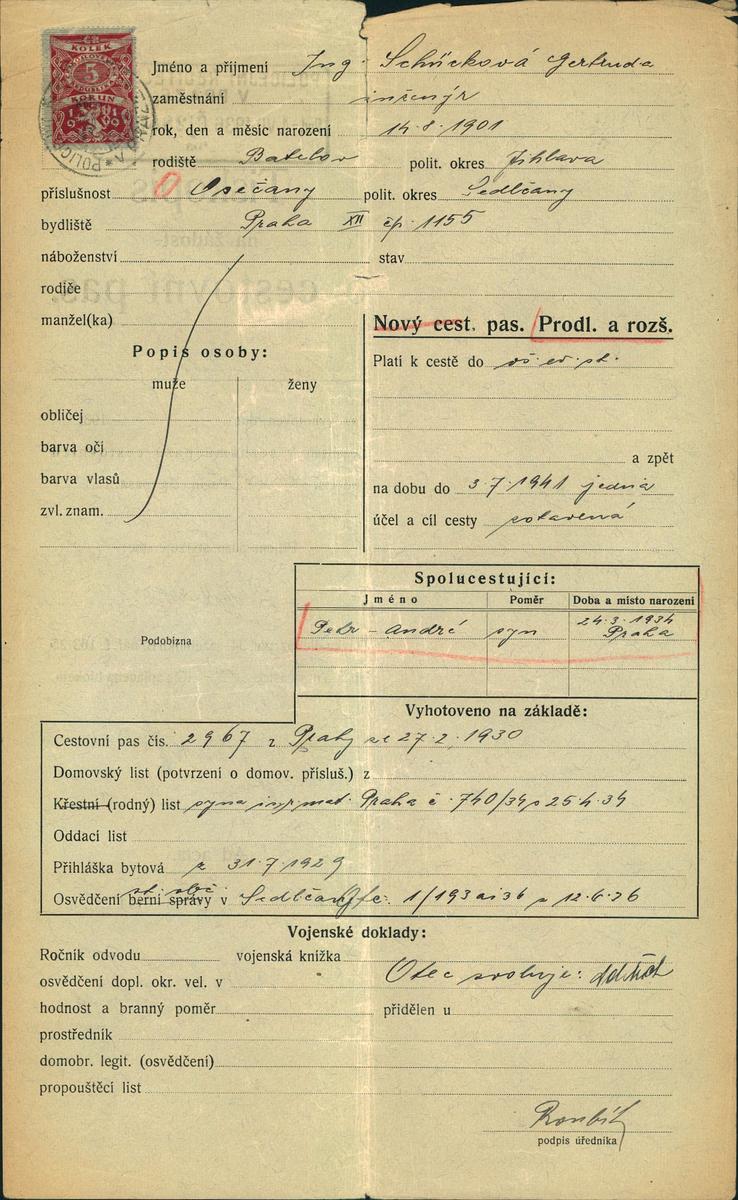 KOLEK
5
KORUN
1919
Jméno a příjmení Ing. Schückova Gertruda
zaměstnání inženýr
rok, den a měsíc narození 14.8.1901
rodiště Batelov polit. okres Jihlava
příslušnost Osečany polit. okres Sedlčany
bydliště Praha XII čp. 1155
náboženství stav
rodiče
manžel(ka)
Nový cest. pas. Prodl. a rozš.
Popis osoby:
muže ženy
obličej
barva očí
barva vlasů
zvl. znam.
Platí k cestě do vš. ev. st.
a zpět
na dobu do 3.7.1941
účel a cíl cesty
Spolucestující:
Jméno Poměr Doba a místo narození
Petr - André syn 24.3.1934 Praha
Podobizna
Vyhotoveno na základě:
Cestovní pas čís. 2967 z Prahy ze 27.2.1930
Domovský list (potvrzení o domov. přísluš.) z
Křestní (rodný) list syna isr. mat. Praha č. 740/34 z 25.4.34
Oddací list
Přihláška bytová z 31.7.1929
Osvědčení berní správy v Sedlčany 1/193 ai 36 z 12.6.36
Vojenské doklady:
Ročník odvodu vojenská knížka
osvědčení dopl. okr. vel. v Otec svoluje:
hodnost a branný poměr přidělen u
prostředník
domobr. legit. (osvědčení)
propouštěcí list
podpis úředníka